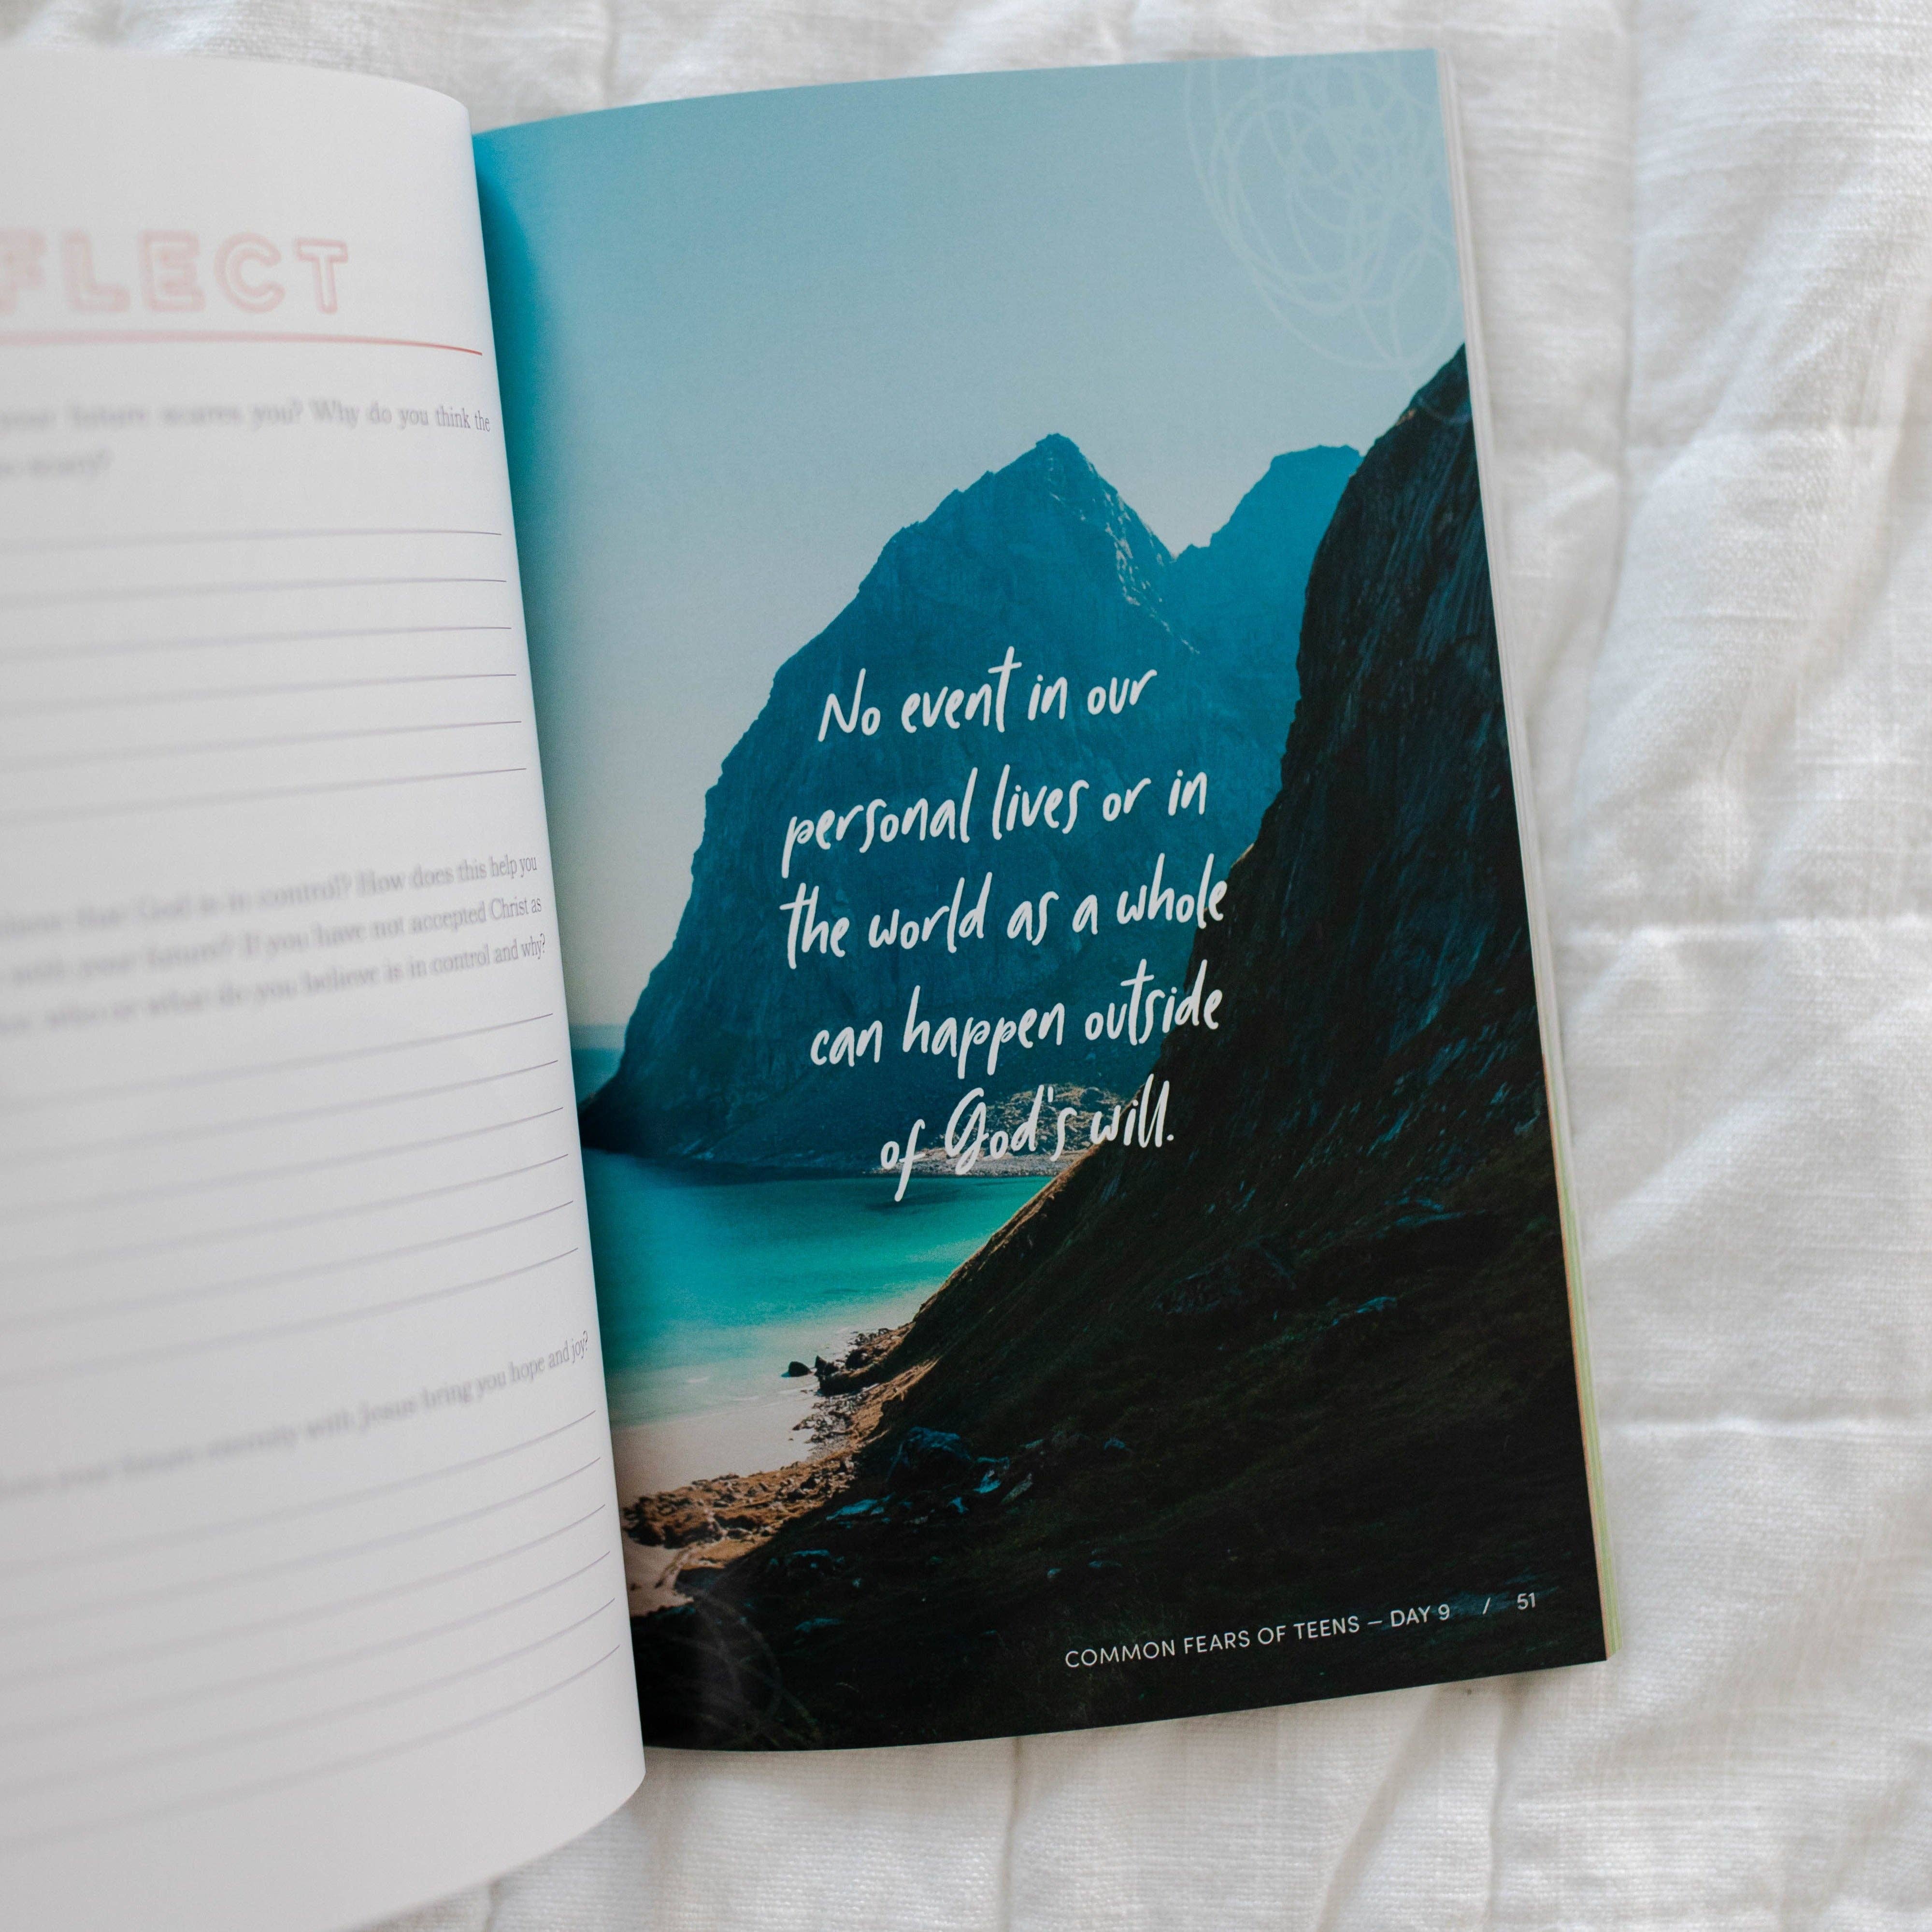 FLECT
your future scares you? Why do you think the
scary?
that God is in control? How does this help you
with your future? If you have not accepted Christ as
who or what do you believe is in control and why?
your future eternity with Jesus bring you hope and joy?
No event in our
personal lives or in
the world as a whole
can happen outside
of God's will.
COMMON FEARS OF TEENS — DAY 9 / 51